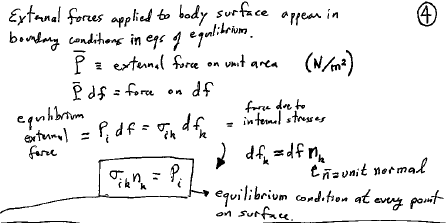 External forces applied to body surface appear in
④
boundary conditions in eqs of equilibrium.
P̄ ≡ external force on unit area (N/m²)
P̄ df = force on df
equilibrium
external
force
= Pᵢ df = σᵢₖ dfₖ =
force due to
internal stresses
dfₖ = df nₖ
n̄ = unit normal
σᵢₖ nₖ = Pᵢ
equilibrium condition at every point
on surface.